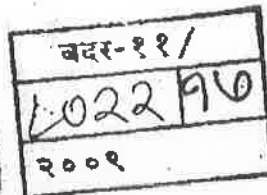 बदर-११/
1022 १७
२००९